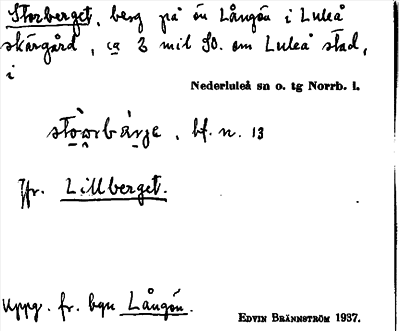 Storberget, berg på ön Långön i Luleå
skärgård, ca 2 mil SO. om Luleå stad,
i
Nederluleå sn o. tg Norrb. l.
bf. n. 13
Jfr. Lillberget.
Uppg. fr. byn Långön.
EDVIN BRÄNNSTRÖM 1937.